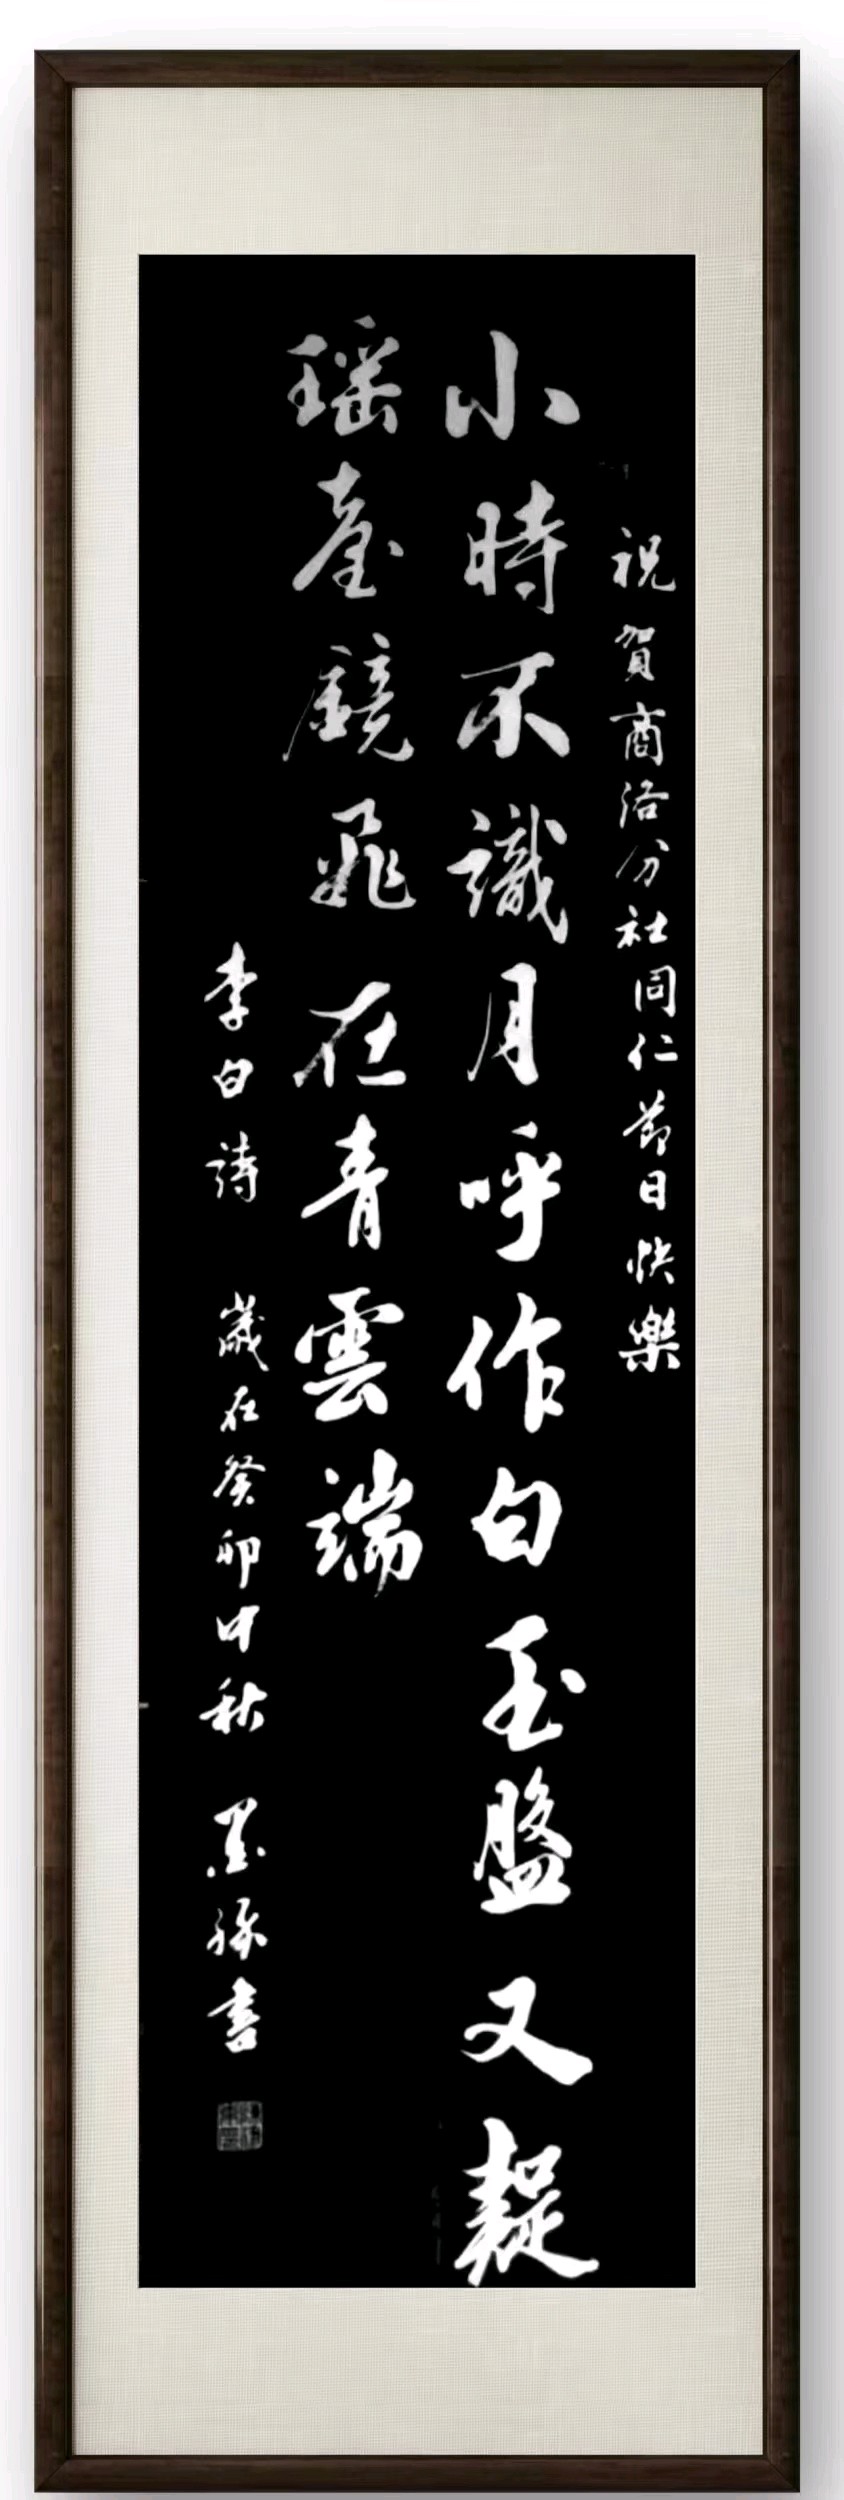 祝賀商洛分社同仁節日快樂
小時不識月呼作白玉盤又疑
瑶臺鏡飛在青雲端
李白詩 歲在癸卯中秋 墨 書